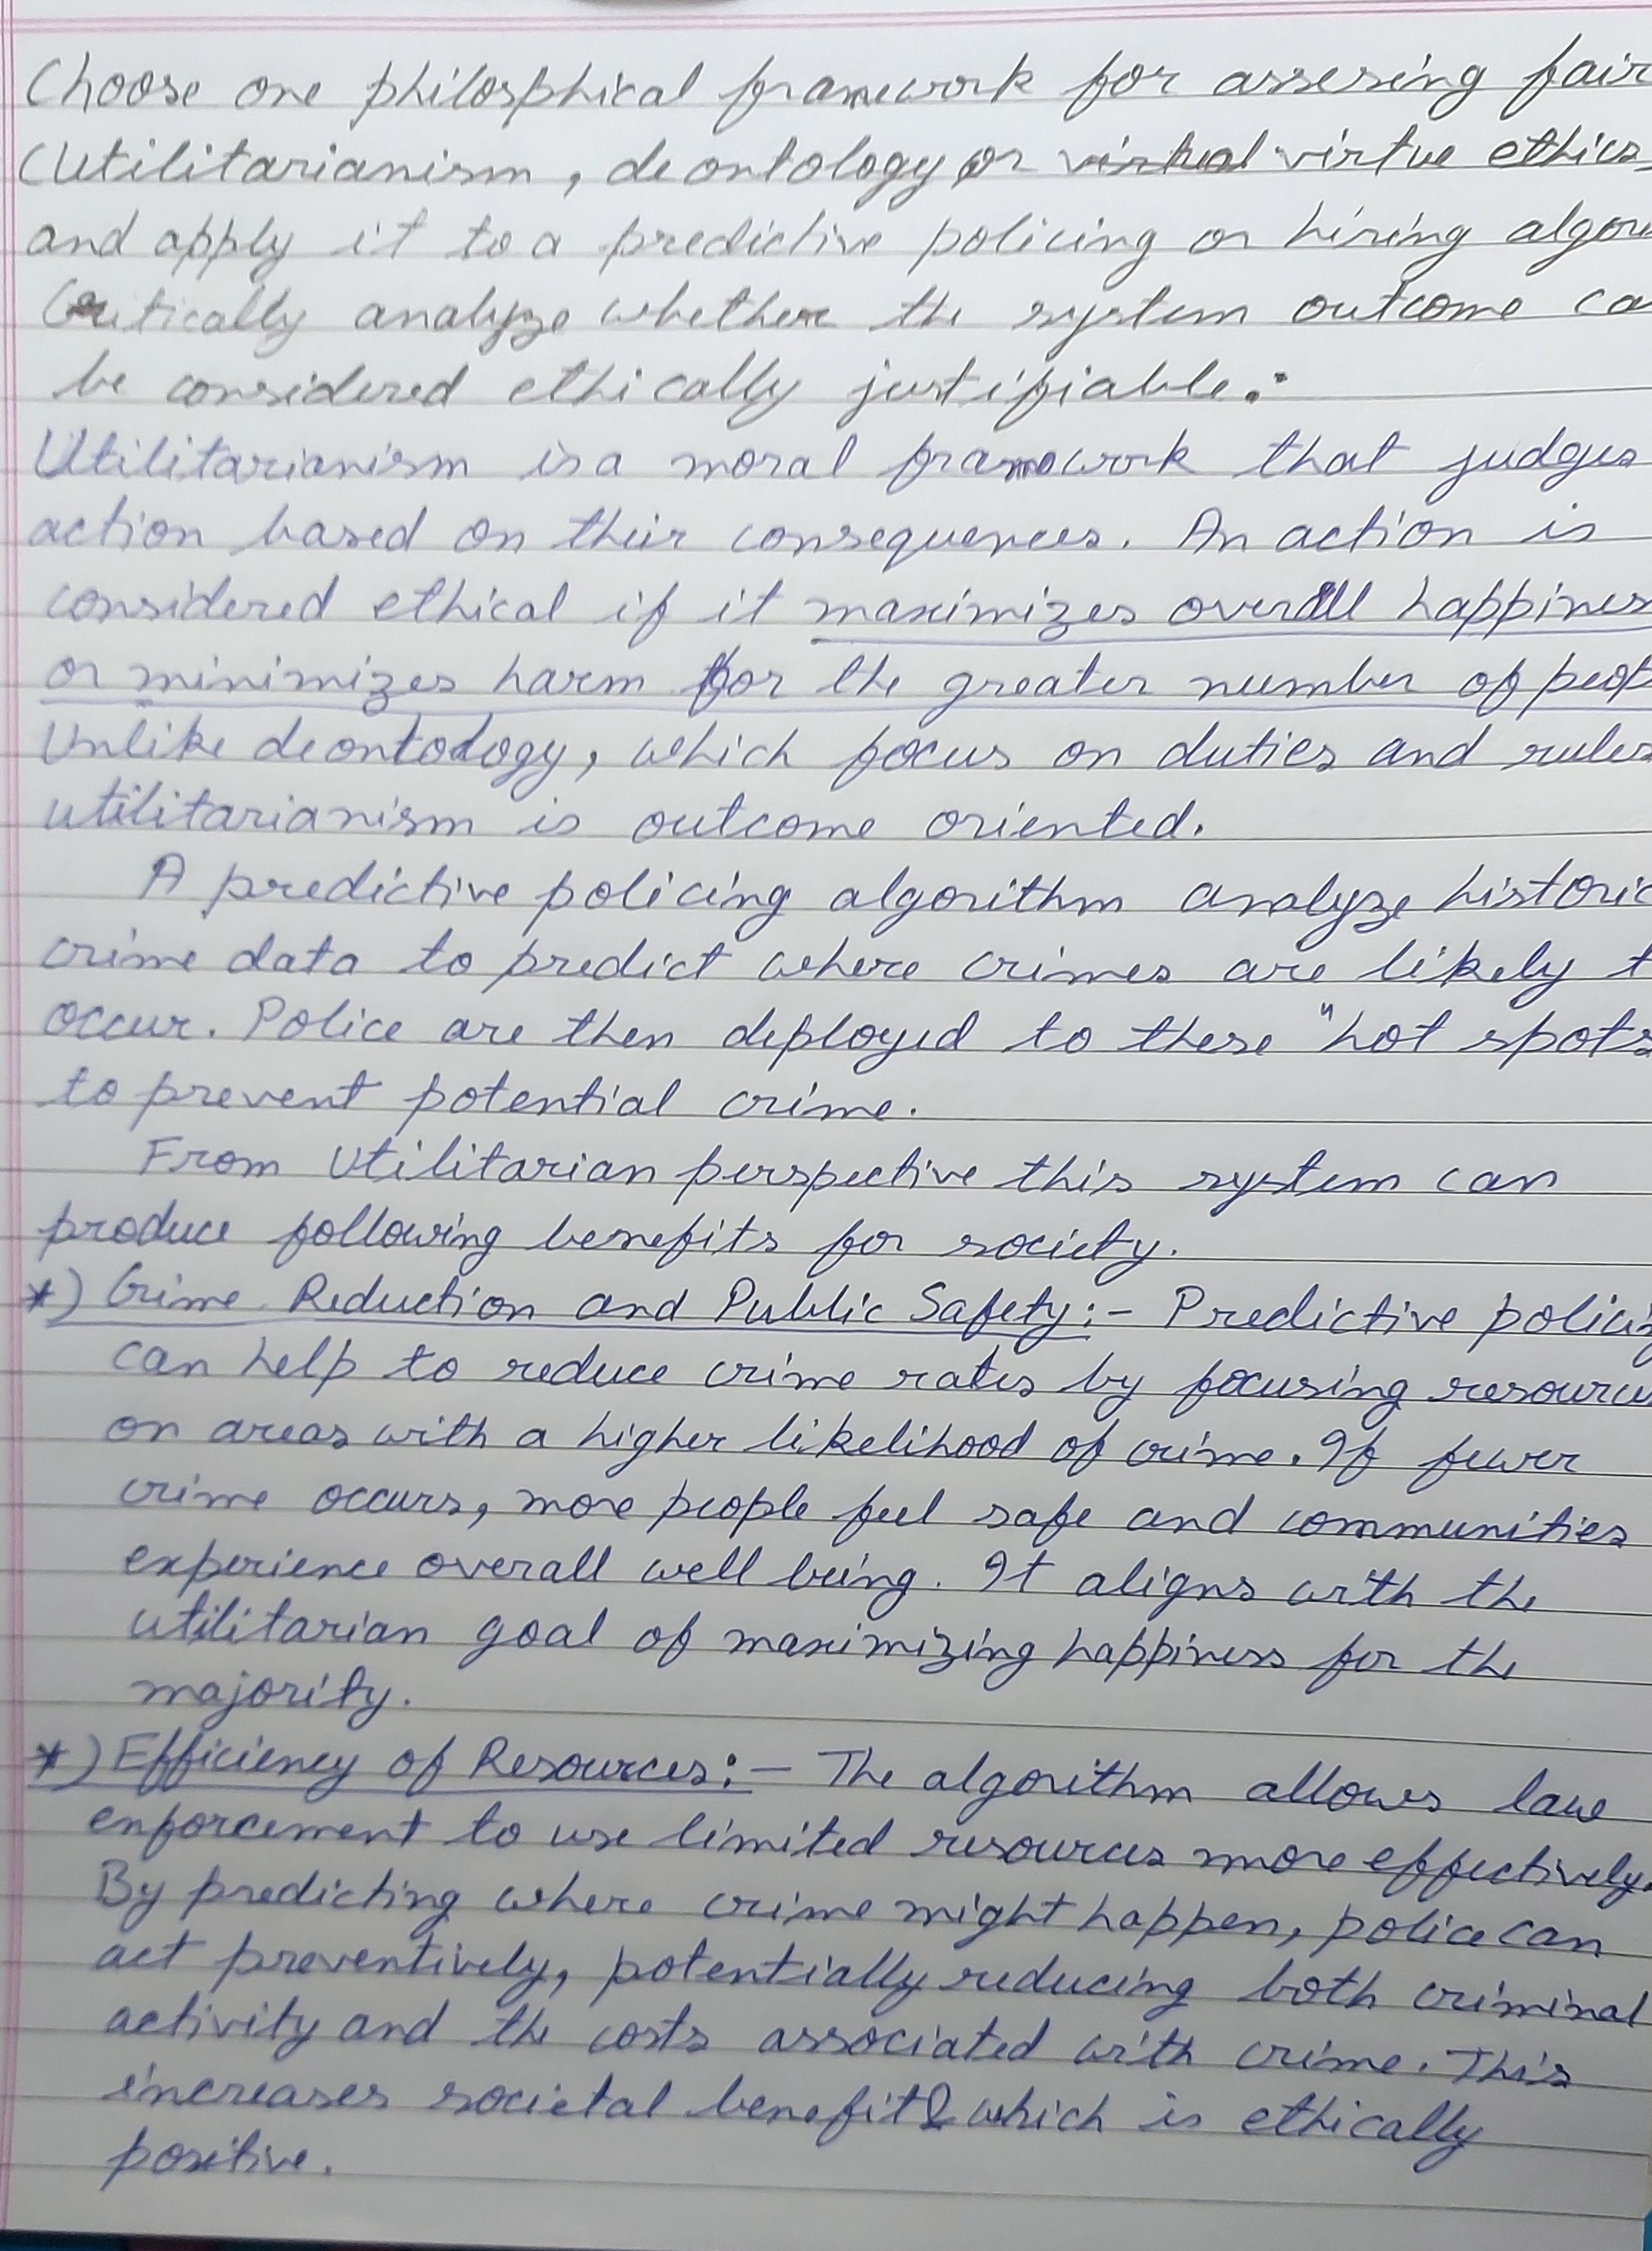 Choose one philosphical framework for assesing fair
(Utilitarianism, deontology or virtual virtue ethics
and apply it to a predictive policing or hiring algori
Critically analyze whether the system outcome ca
be considered ethically justifiable.:
Utilitarianism is a moral framework that judges
action based on their consequences. An action is
considered ethical if it maximizes overall happines
or minimizes harm for the greater number of peop
Unlike deontology, which focus on duties and rules
utilitarianism is outcome oriented.
A predictive policing algorithm analyze historic
crime data to predict where crimes are likely t
occur. Police are then deployed to these "hot spots
to prevent potential crime.
From Utilitarian perspective this system can
produce following benefits for society.
*) Crime Reduction and Public Safety:- Predictive policing
can help to reduce crime rates by focusing resource
on areas with a higher likelihood of crime. If fewer
crime occurs, more people feel safe and communities
experience overall well being. It aligns with the
utilitarian goal of maximizing happiness for the
majority.
*) Efficiency of Resources:- The algorithm allows law
enforcement to use limited resources more effectively.
By predicting where crime might happen, police can
act preventively, potentially reducing both criminal
activity and the costs associated with crime. This
increases societal benefit which is ethically
positive.